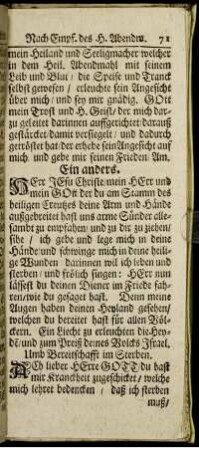 Nach Empf. des H. Abendm. 71
mein Heiland und Seeligmacher welcher
in dem Heil. Abendmahl mit seinem
Leib und Blut die Speise und Tranck
selbst gewesen / erleuchte sein Angesicht
über mich / und sey mir gnädig. GOtt
mein Trost und H. Geist / der mich dar-
zu geleitet darinnen auffgerichtet darauß
gestärcket damit versiegelt / und dadurch
getröstet hat / der erhebe sein Angesicht auf
mich / und gebe mir seinen Frieden Am.
Ein anders.
HErr JEsu Christe mein HErr und
mein GOtt der du am Stamm des
heiligen Creutzes deine Arm und Hände
außgebreitet hast uns arme Sünder alle-
sambt zu empfahen / und zu dir zu ziehen /
sihe / ich gebe und lege mich in deine
Hände / und schwinge mich in deine heili-
ge Wunden darinnen wil ich leben und
sterben / und frölich singen: HErr nun
lässest du deinen Diener im Friede fah-
ren / wie du gesaget hast. Denn meine
Augen haben deinen Heyland gesehen /
welchen du bereitet hast für allen Völ-
ckern. Ein Liecht zu erleuchten die Hey-
de / und zum Preiß deines Volcks Israel.
Umb Bereitschafft im Sterben.
ACh lieber HErre GOTT du hast
mir Kranckheit zugeschicket / welche
mich lehret bedencken / daß ich sterben
muß /